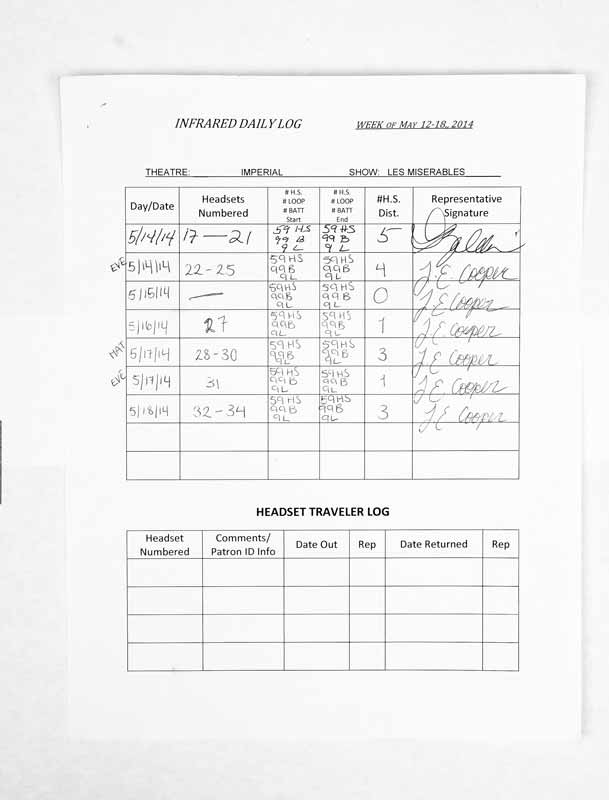 INFRARED DAILY LOG WEEK OF MAY 12-18, 2014
THEATRE: IMPERIAL SHOW: LES MISERABLES
Day/Date Headsets Numbered # H.S. # LOOP # BATT Start # H.S. # LOOP # BATT End #H.S. Dist. Representative Signature
5/14/14 17 — 21 59 HS 99 B 9 L 59 HS 99 B 9 L 5
EVE 5/14/14 22-25 59HS 99B 9L 59HS 99B 9L 4 J.E. Cooper
5/15/14 — 59HS 99B 9L 59HS 99B 9L 0 J.E. Cooper
5/16/14 27 59HS 99B 9L 59HS 99B 9L 1 J.E. Cooper
MAT 5/17/14 28-30 59HS 99B 9L 59HS 99B 9L 3 J.E. Cooper
EVE 5/17/14 31 59HS 99B 9L 59HS 99B 9L 1 J.E. Cooper
5/18/14 32-34 59HS 99B 9L 59HS 99B 9L 3 J.E. Cooper
HEADSET TRAVELER LOG
Headset Numbered Comments/ Patron ID Info Date Out Rep Date Returned Rep